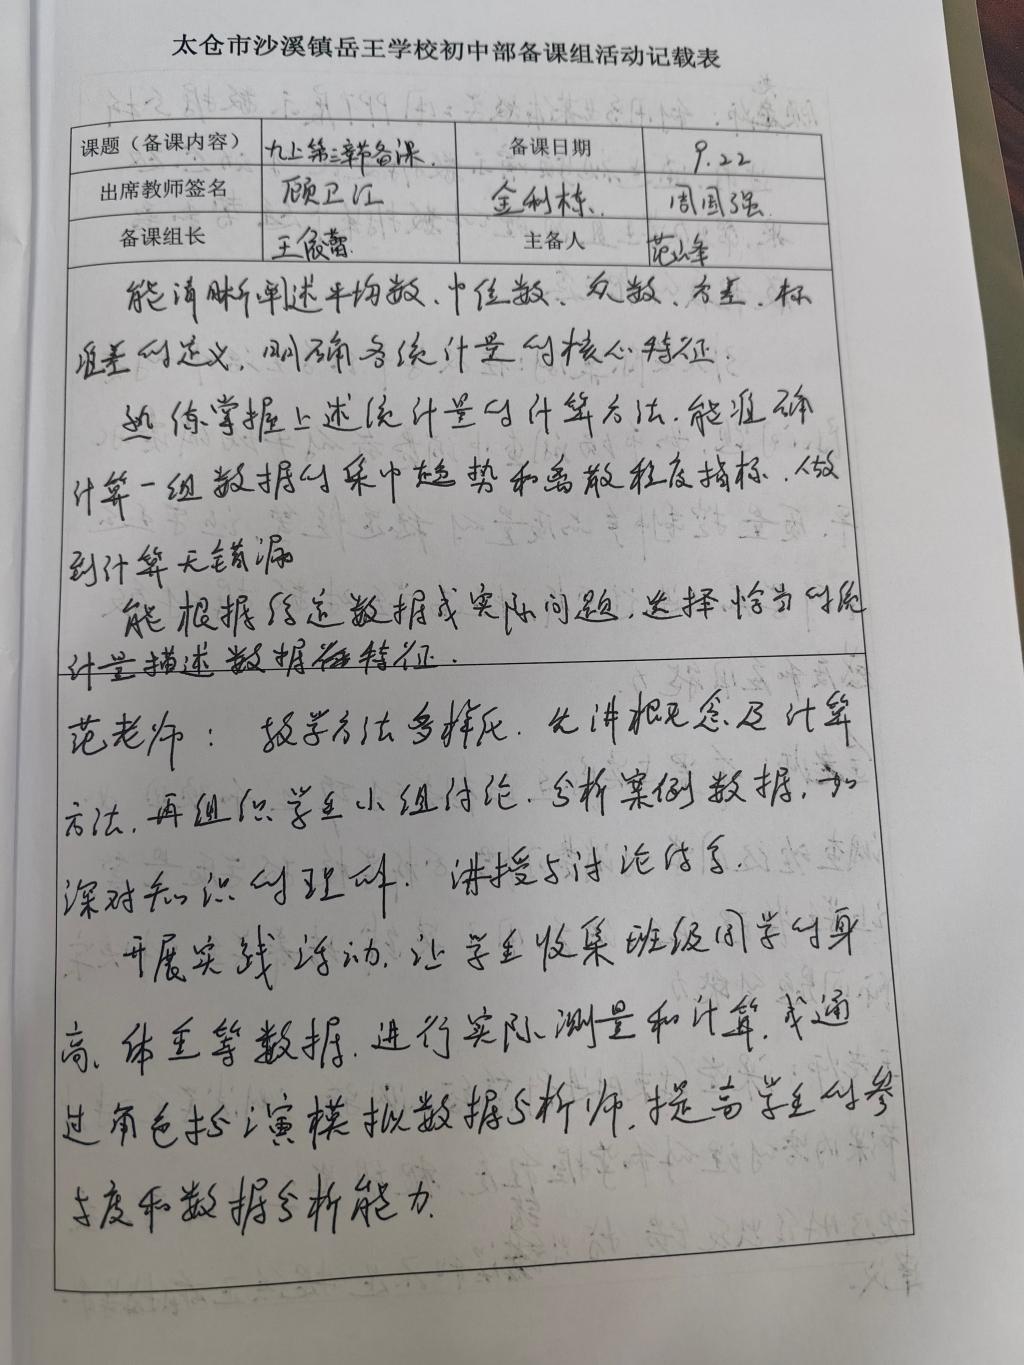 太仓市沙溪镇岳王学校初中部备课组活动记载表
课题（备课内容） 九上第三章节备课. 备课日期 9.22
出席教师签名 顾卫江 金利栋. 周国强
备课组长 王俊蕾 主备人 范峰
能清晰阐述平均数、中位数、众数、方差、标
准差的定义，明确各统计量的核心特征.
熟练掌握上述统计量的计算方法.能准确
计算一组数据的集中趋势和离散程度指标.做
到计算无错漏
能根据给定数据或实际问题，选择恰当的统
计量描述数据特征.
范老师：教学方法多样化.先讲概念及计算
方法.再组织学生小组讨论.分析案例数据，加
深对知识的理解.讲授与讨论结合.
开展实践活动.让学生收集班级同学的身
高、体重等数据.进行实际测量和计算.或通
过角色扮演模拟数据分析师.提高学生的参
与度和数据分析能力.